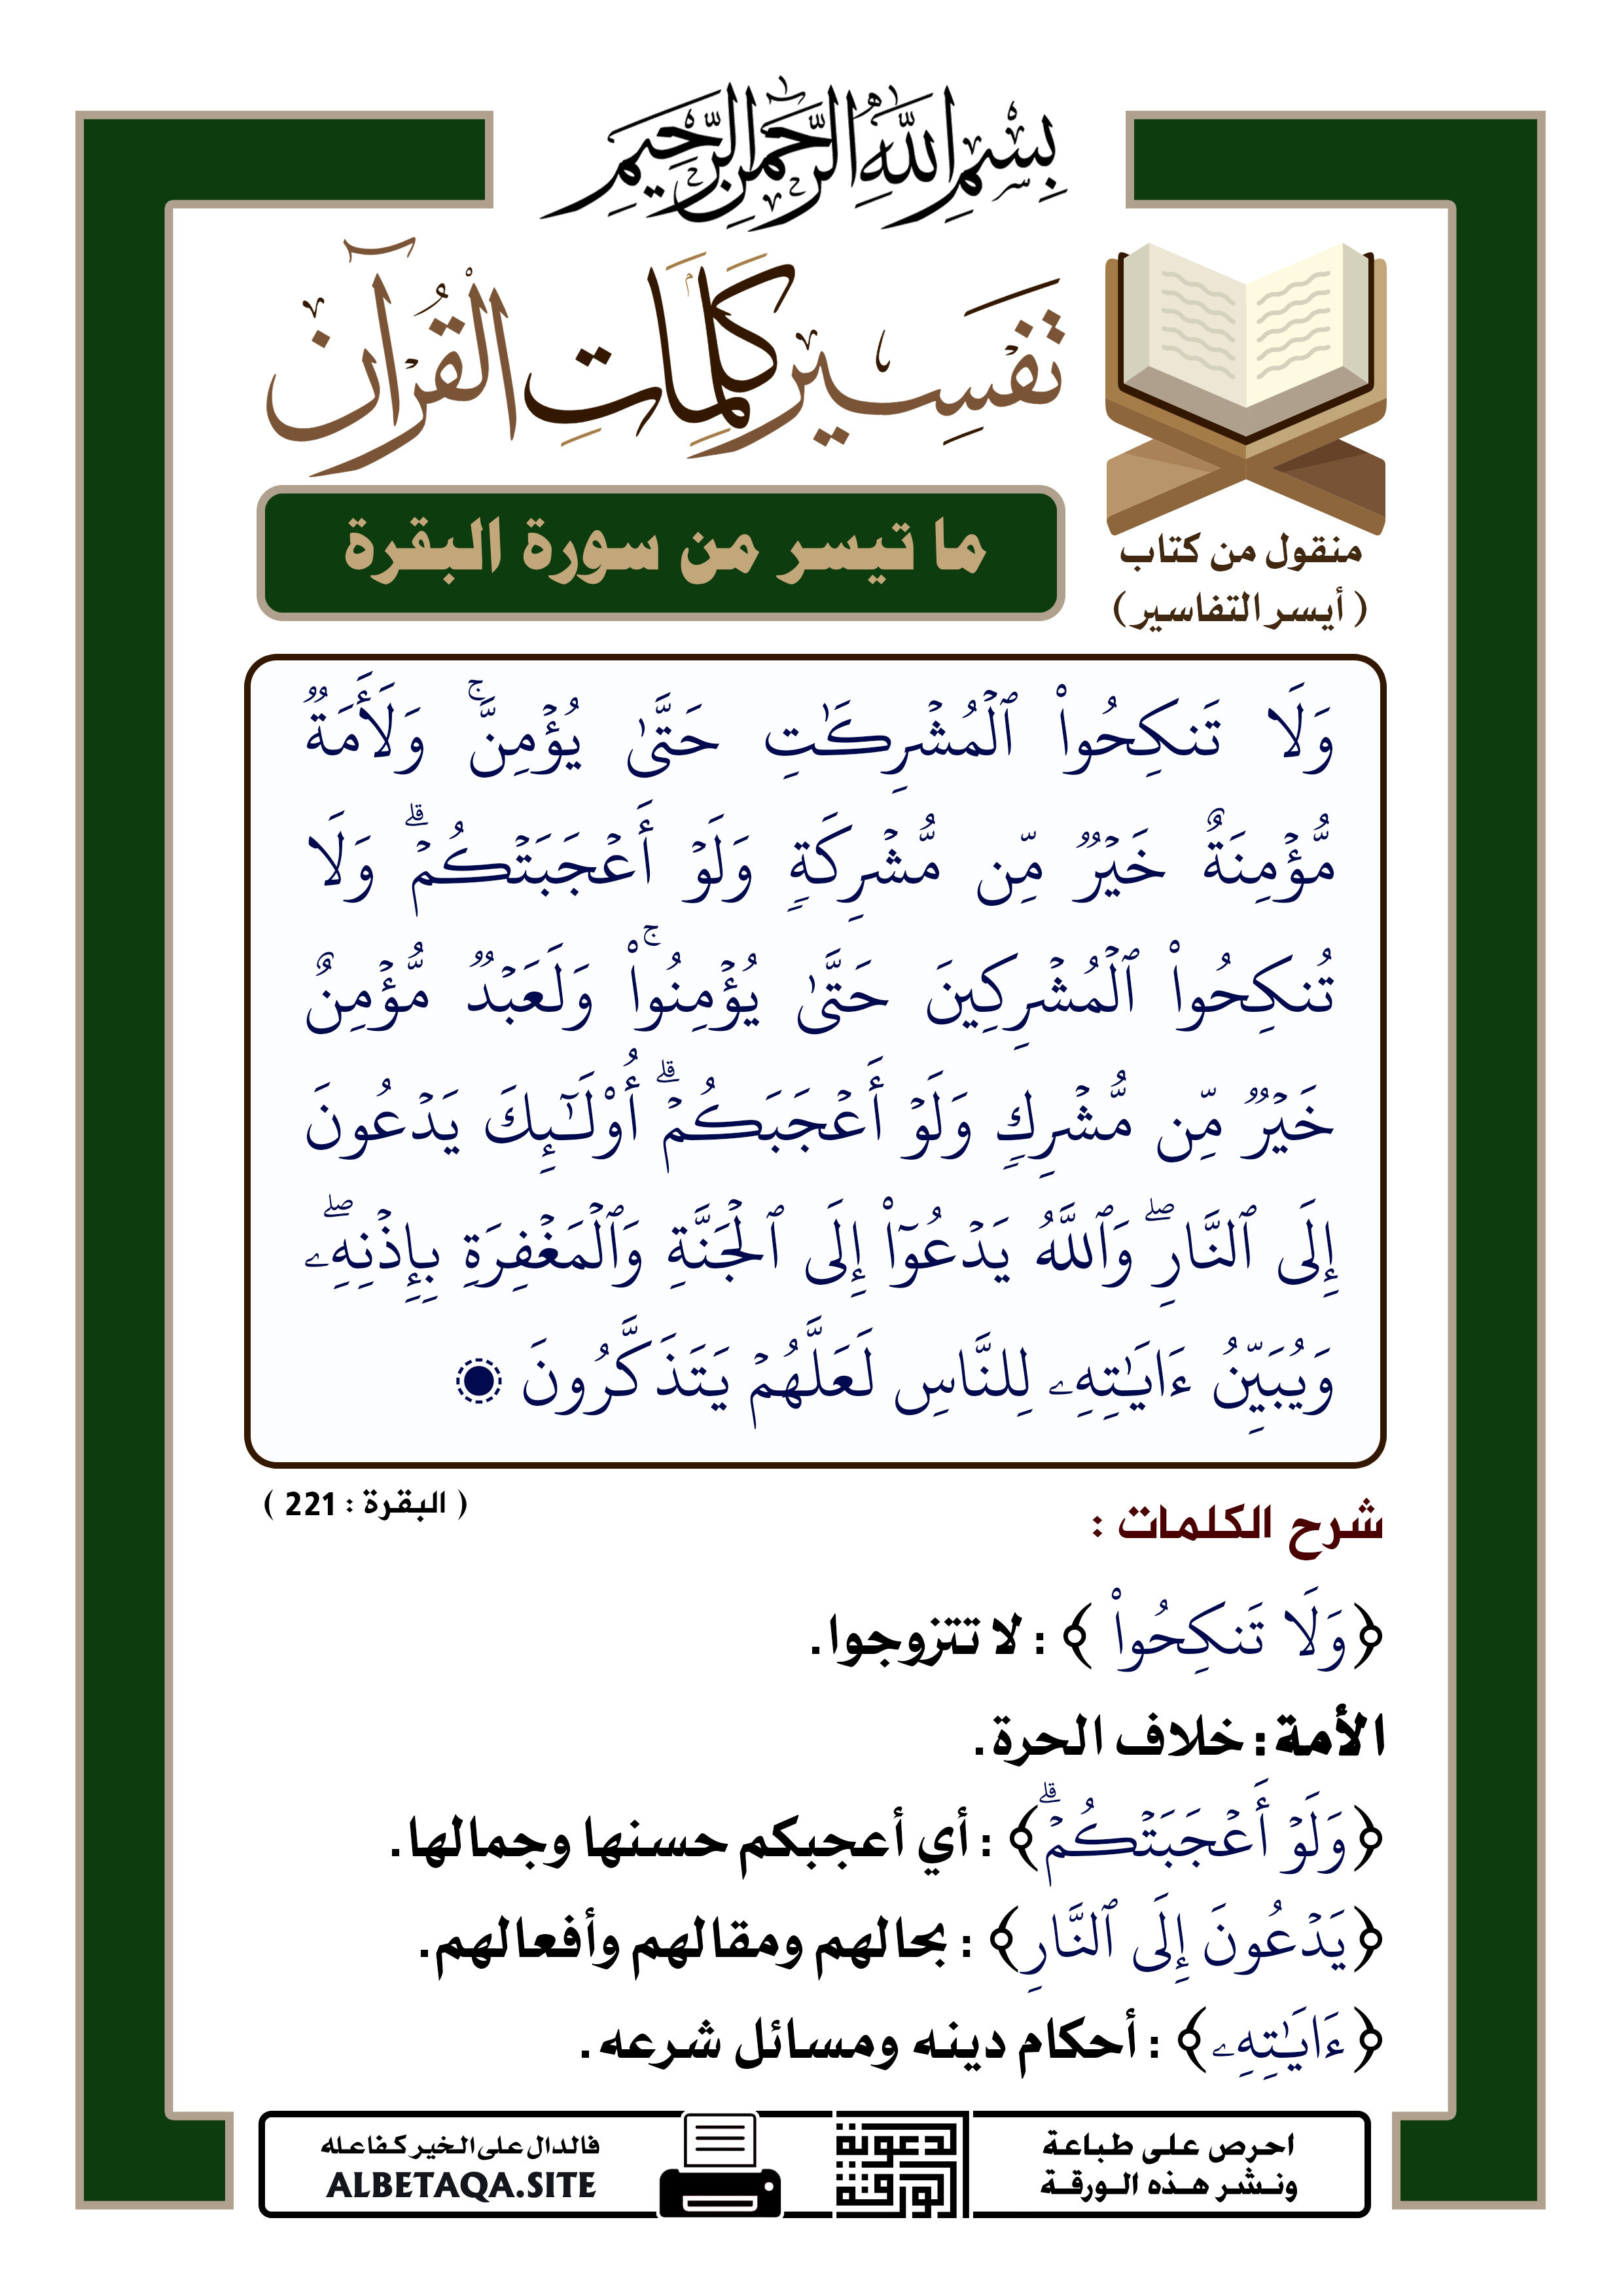 بِسْمِ اللَّهِ الرَّحْمَٰنِ الرَّحِيمِ
تَفْسِير كَلِمَاتِ القُرْآن
منقول من كتاب
( أيسر التفاسير )
ما تيسر من سورة البقرة
وَلَا تَنكِحُوا۟ ٱلْمُشْرِكَـٰتِ حَتَّىٰ يُؤْمِنَّ ۚ وَلَأَمَةٌ
مُّؤْمِنَةٌ خَيْرٌ مِّن مُّشْرِكَةٍ وَلَوْ أَعْجَبَتْكُمْ ۗ وَلَا
تُنكِحُوا۟ ٱلْمُشْرِكِينَ حَتَّىٰ يُؤْمِنُوا۟ ۚ وَلَعَبْدٌ مُّؤْمِنٌ
خَيْرٌ مِّن مُّشْرِكٍ وَلَوْ أَعْجَبَكُمْ ۗ أُو۟لَـٰٓئِكَ يَدْعُونَ
إِلَى ٱلنَّارِ ۖ وَٱللَّهُ يَدْعُوٓا۟ إِلَى ٱلْجَنَّةِ وَٱلْمَغْفِرَةِ بِإِذْنِهِۦ ۖ
وَيُبَيِّنُ ءَايَـٰتِهِۦ لِلنَّاسِ لَعَلَّهُمْ يَتَذَكَّرُونَ
( البقرة : 221 )
شرح الكلمات :
﴿وَلَا تَنكِحُوا۟ ﴾ : لا تتزوجوا.
الأمة : خلاف الحرة.
﴿وَلَوْ أَعْجَبَتْكُمْ ۗ﴾ : أي أعجبكم حسنها وجمالها.
﴿يَدْعُونَ إِلَى ٱلنَّارِ﴾ : بحالهم ومقالهم وأفعالهم.
﴿ءَايَـٰتِهِۦ﴾ : أحكام دينه ومسائل شرعه.
احرص على طباعة
ونشر هذه الورقة
الورقة
الدعوية
فالدال على الخير كفاعله
ALBETAQA.SITE